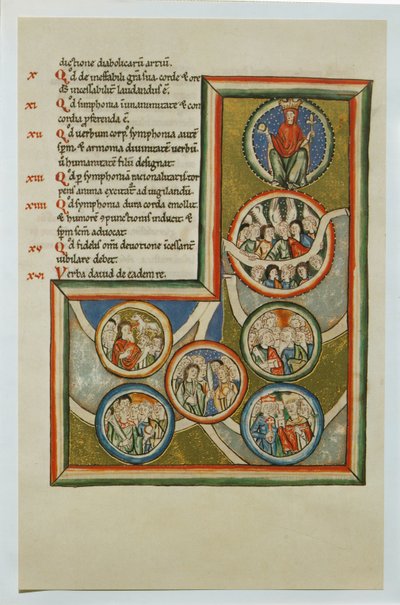 dictione diabolicarū artiū.
x Qd de ineffabili gr̄a sua corde & ore
ds̄ incessabiliť laudandus ē.
xi Qd symphonia ī unanimitate & con
cordia p̄ferenda ē.
xii Qd uerbum corp̄ symphonia autē
sp̄m & armonia diuinitatē uerbū
ū humanitatē filii designat.
xiii Qd p̄ symphoniā racionalitatis tor
pens anima excitať ad uigilandū.
xiiii Qd symphonia dura corda emolliť
& humorē ɔpunctionis inducit &
sp̄m sc̄m aduocat.
xv Qd fidelis omī deuotione ī cessanť
iubilare debet.
xvi Verba dauid de eadem re.